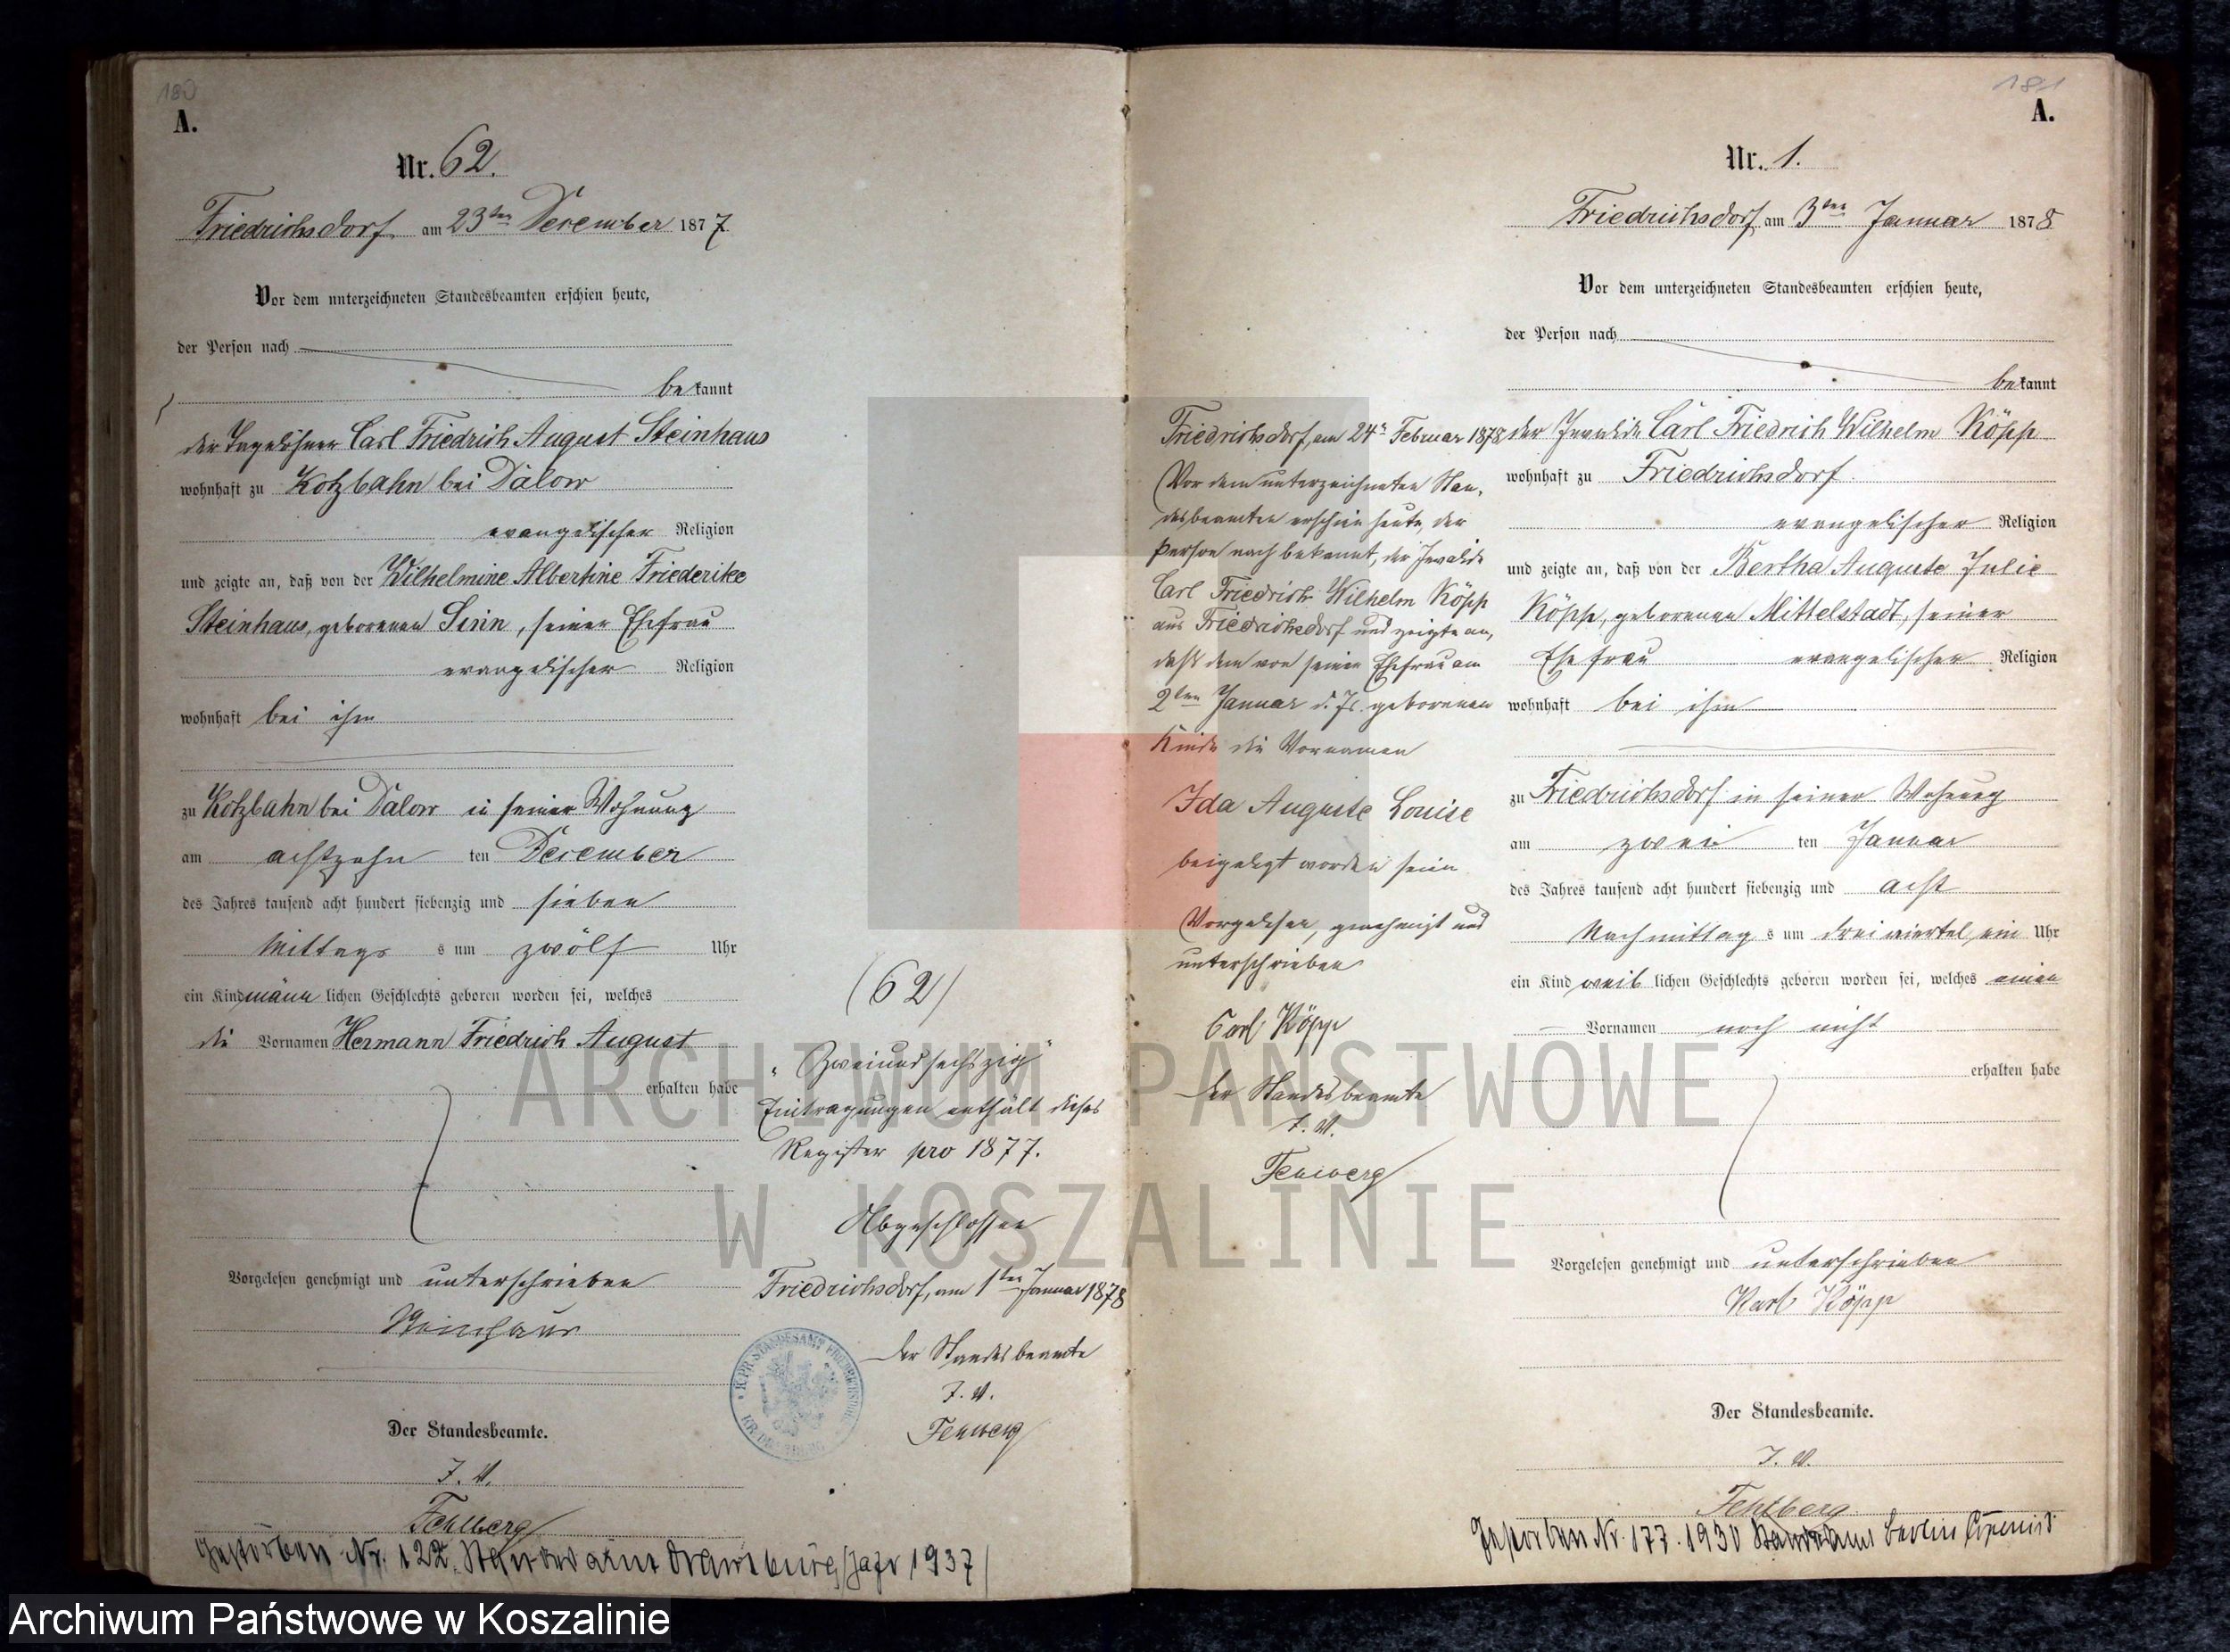 180
A.
Nr. 62.
Friedrichsdorf am 23ten December 1877.
Vor dem unterzeichneten Standesbeamten erschien heute,
der Person nach
bekannt
der Tagelöhner Carl Friedrich August Steinhaus
wohnhaft zu Kotzbahn bei Dalow
evangelischer Religion
und zeigte an, daß von der Wilhelmine Albertine Friederike
Steinhaus, geborenen Senn, seiner Ehefrau
evangelischer Religion
wohnhaft bei ihm
zu Kotzbahn bei Dalow in seiner Wohnung
am achtzehn ten December
des Jahres tausend acht hundert siebenzig und sieben
Mittags s um zwölf Uhr
ein Kind männlichen Geschlechts geboren worden sei, welches
die Vornamen Hermann Friedrich August
erhalten habe
Vorgelesen genehmigt und unterschrieben
Steinhaus
Der Standesbeamte.
I. V.
Fehlberg
Gestorben Nr. 122 Standesamt Dramburg/Jahr 1937/
(62)
„Zweiundsechszig“
Eintragungen enthält dieses
Register pro 1877.
Abgeschlossen
Friedrichsdorf, am 1ten Januar 1878
Der Standesbeamte
I. V.
Fehlberg
K. PR. STANDESAMT FRIEDRICHSDORF
181
A.
Nr. 1.
Friedrichsdorf am 3ten Januar 1878
Vor dem unterzeichneten Standesbeamten erschien heute,
der Person nach
bekannt
der Invalide Carl Friedrich Wilhelm Köpp
wohnhaft zu Friedrichsdorf
evangelischer Religion
und zeigte an, daß von der Bertha Auguste Julie
Köpp, geborenen Mittelstadt, seiner
Ehefrau evangelischer Religion
wohnhaft bei ihm
zu Friedrichsdorf in seiner Wohnung
am zwei ten Januar
des Jahres tausend acht hundert siebenzig und acht
Nachmittag s um dreiviertel ein Uhr
ein Kind weiblichen Geschlechts geboren worden sei, welches einen
Vornamen noch nicht
erhalten habe
Vorgelesen genehmigt und unterschrieben
Karl Köpp
Der Standesbeamte.
I. V.
Fehlberg
Gestorben Nr. 177. 1930 Standesamt Berlin Cöpenick
Friedrichsdorf, am 24n Februar 1878
Vor dem unterzeichneten Stan-
desbeamten erschien heute, der
Person nach bekannt, der Invalide
Carl Friedrich Wilhelm Köpp
aus Friedrichsdorf und zeigte an,
daß dem von seiner Ehefrau am
2ten Januar d. Js. geborenen
Kinde die Vornamen
Ida Auguste Louise
beigelegt worden seien
Vorgelesen, genehmigt und
unterschrieben
Carl Köpp
Der Standesbeamte
I. V.
Fehlberg
ARCHIWUM PAŃSTWOWE
W KOSZALINIE
Archiwum Państwowe w Koszalinie